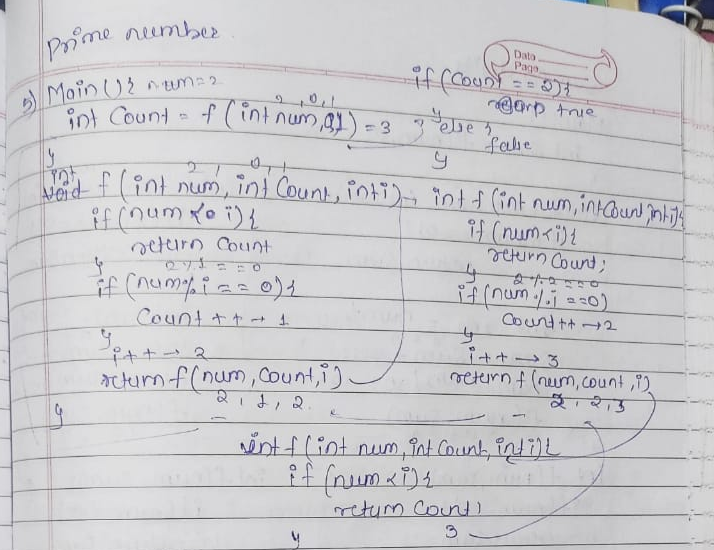 Prime number
Date
Page
5) Main(){ num=2
2,0,1
int Count = f(int num,0,1) = 3
}
if (Count == 2){
true
} else {
false
}
2, 0, 1
int
void f (int num, int Count, int i)
if (num < i){
return Count
}
2%1 == 0
if (num%i == 0){
Count++ → 1
}
i++ → 2
return f(num, Count, i)
2, 1, 2
}
int f (int num, int Count, int i){
if (num<i){
return Count;
}
2%2 == 0
if (num%i ==0)
Count++ → 2
}
i++ → 3
return f(num, count, i)
2, 2, 3
int f (int num, int Count, int i){
if (num<i){
return Count;
}
3